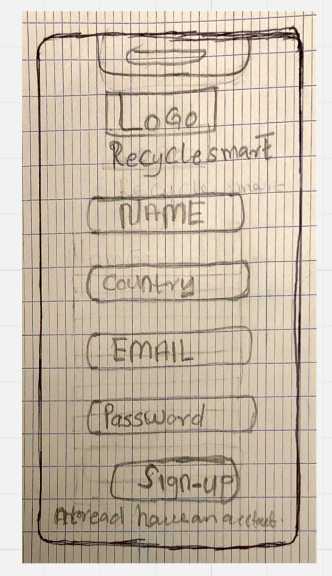 LOGO
Recyclesmart
NAME
Country
EMAIL
Password
Sign-up
have an